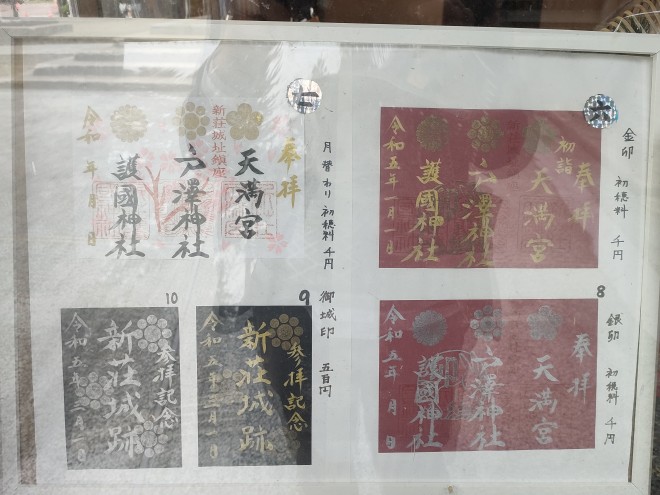 一
奉拝
新荘城址鎮座
天満宮
戸澤神社
護國神社
令和 年 月 日
月替わり 初穂料 千円
六
奉拝
初詣
天満宮
戸澤神社
護國神社
令和五年一月一日
金印 初穂料 千円
10
参拝記念
新荘城跡
令和五年三月一日
9
参拝記念
新荘城跡
令和五年三月一日
御城印 五百円
8
奉拝
天満宮
戸澤神社
護國神社
令和五年 月 日
銀印 初穂料 千円